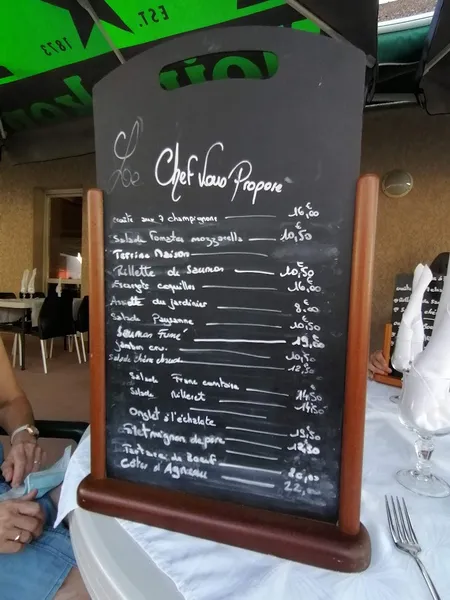 EST. 1873
Le
Chef Vous Propose
croute aux 7 champignons 16,00
Salade Tomates mozzarella 10,50
Terrine Maison
Rillette de Saumon 10,50
Escargots coquilles 16,00
Assiette du jardinier 8,00
Salade Paysanne 10,50
Saumon Fumé 19,00
Jambon cru 10,50
Salade chèvre chaud 12,50
Salade Franc comtoise 14,50
Salade Milleret 14,50
Onglet à l'échalote 19,50
Filet mignon de porc 18,50
Tartare de Boeuf 20,00
Côtes d'Agneau 22,00